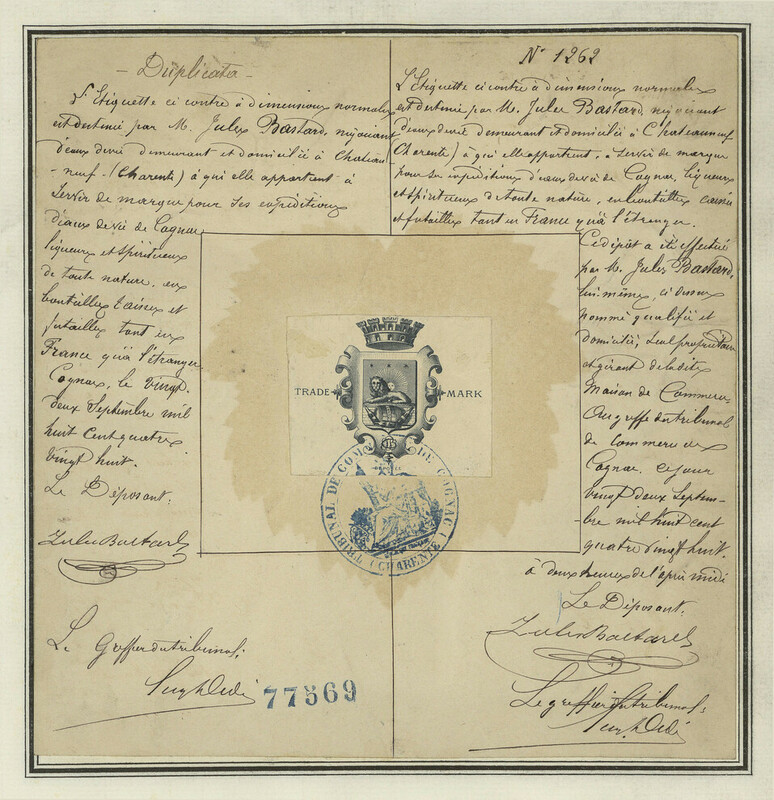 Duplicata
L'Etiquette ci contre à dimensions normales
est destinée par M. Jules Bastard, négociant
d'eaux de vie demeurant et domicilié à Chateau-
-neuf (Charente) à qui elle appartient à
servir de marque pour ses expéditions
d'eaux de vie de Cognac
liqueurs et spiritueux
de toute nature, en
bouteilles caisses et
futailles tant en
France qu'à l'étranger
Cognac, le vingt
deux Septembre mil
huit cent quatre
vingt huit.
Le Déposant:
Jules Bastard
Le Greffier du tribunal:
77569
N° 1262
L'Etiquette ci contre à dimensions normales
est destinée par M. Jules Bastard, négociant
d'eaux de vie demeurant et domicilié à Chateauneuf
Charente) à qui elle appartient, à servir de marque
pour ses expéditions d'eaux de vie de Cognac, liqueurs
et spiritueux de toute nature, en bouteilles caisses
et futailles tant en France qu'à l'étranger.
Ce dépôt a été effectué
par M. Jules Bastard,
lui même, ci dessus
nommé qualifié et
domicilié, seul propriétaire
et gérant de la dite
Maison de Commerce
Au greffe du tribunal
de commerce de
Cognac, ce jour
vingt deux Septem-
bre mil huit cent
quatre vingt huit.
à deux heures de l'après midi
Le Déposant.
Jules Bastard
Le greffier du tribunal:
TRADE MARK
TRIBUNAL DE COM. DE COGNAC (CHARENTE)